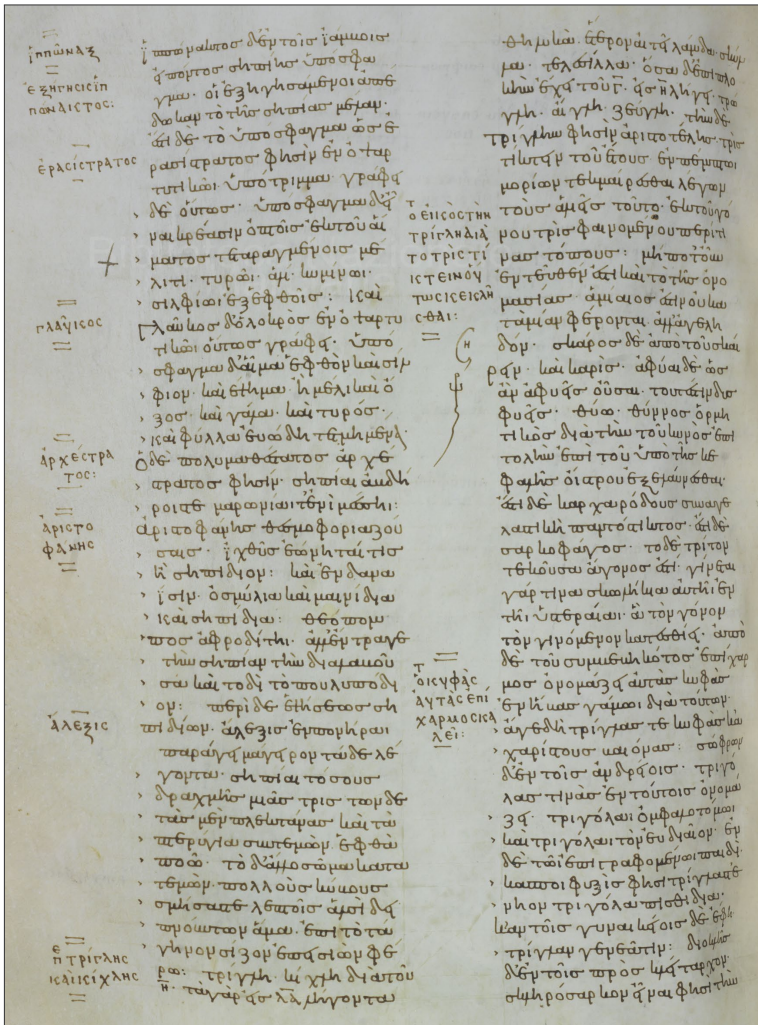 ἱππῶναξ
ἐξήγησις ἱπ
πώνακτος:
ἐρασίστρατος
γλαῦκος
ἀρχέστρα
τος:
ἀριστο
φάνης
ἄλεξις
π τρίγλης
καὶ κίχλης
ἱππώνακτος δ' ἐν τοῖς ἰάμβοις
εἰπόντος σηπίης ὑπόσφα
γμα· οἱ ἐξηγησάμενοι ἀπέ
δωκαν τὸ τῆς σηπίας μέλαν·
ἐστὶ δὲ τὸ ὑπόσφαγμα ὡς ἐ
ρασίστρατος φησὶν ἐν ὀψαρ
τυτικῶι ὑπότριμμα· γράφει
δὲ οὕτως· ὑπόσφαγμα δ' εἶ
ναι κρέασιν ὀπτοῖς ἐκ τοῦ αἵ
ματος τεταραγμένοις μέ
λιτι· τυρῶι· ἁλί· κυμίνωι·
σιλφίωι ἑξέφθοις: καὶ
γλαῦκος δ' ὁ λοκρὸς ἐν ὀψαρτυ
τικῶι οὕτως γράφει· ὑπό
σφαγμα δ' αἷμα ἑφθὸν καὶ σίλ
φιον· καὶ ἕψημα· ἢ μέλι καὶ ὄ
ξος· καὶ γάλα· καὶ τυρός·
καὶ φύλλα εὐώδη τετμημένα·
ὁ δὲ πολυμαθέστατος ἀρχέ
στρατος φησίν· σηπίαι ἀβδή
ροις τε μαρωνίαι τ' ἐνὶ μέσσηι:
ἀριστοφάνης θεσμοφοριαζού
σαις· ἰχθῦς ἐώνηταί τις
ἢ σηπίδιον: καὶ ἐν δανα
ΐσιν· ὀσμύλια καὶ μαινίδια
καὶ σηπίδια: θεόπομ
πος ἀφροδίτηι· ἀλλ' ἔντραγε
τὴν σηπίαν τηνδὶ λαβοῦ
σα καὶ τοδὶ τὸ πουλυπόδι
ον: περὶ δὲ ἑψήσεως ση
πιδίων· ἄλεξις ἐν πονήραι
παράγει μάγειρον τάδε λέ
γοντα· σηπίαι τόσους
δραχμῆς μιᾶς τρεῖς τῶν δε
τὰς μὲν πλεκτάνας καὶ τὰ
πτερύγια συντεμὼν ἑφθὰ
ποῶ· τὸ δ' ἄλλο σῶμα κατα
τεμὼν πολλοὺς κύβους
σμήσας τε λεπτοῖς ἁλσὶ δει
πνούντων ἅμα· ἐπὶ τὸ τά
γηνον σίζον ἐπεισιὼν φέ
ρω: τρίγλη· κίχλη διὰ τοῦ
η· τὰ γὰρ εἰς λα λήγοντα
ὅτι εἰκὸς τὴν
τρίγλη διὰ
τὸ τρὶς τί
κτειν οὕ
τως κεκλῆ
σθαι:
ὅτι κυφὰς
αὐτὰς ἐπί
χαρμος κα
λεῖ:
θηλυκὰ· ἕτερον αἰτεῖ λάμβδα· σκύλ
λα· τελέσιλλα· ὅσα δὲ ἐπιπλο
κὴν ἔχει τοῦ γ, εἰς η λήγει· τρώ
γλη· αἴγλη· ζεύγλη· τὴν δὲ
τρίγλην φησὶν ἀριστοτέλης τρὶς
τίκτειν τοῦ ἔτους ἐν πέμπτωι
μορίων τεκμαίρεσθαι λέγων
τοὺς ἁλιεῖς τοῦτο ἐκ τοῦ γό
νου τρὶς φαινομένου περί τι
νας τόπους: μήποτ' οὖν
ἐντεῦθέν ἐστι καὶ τὸ τῆς ὀνο
μασίας· ὡς ἀμίαι ὅτι οὐ κα
τὰ μίαν φέρονται ἀλλ' ἀγελη
δόν· σκάρος δὲ ἀπὸ τοῦ σκαί
ρειν· καὶ καρίς· ἀφύαι δὲ ὡς
ἂν ἀφυεῖς οὖσαι· τουτέστιν δυσ
φυεῖς· θύω· θύννος ὁρμη
τικὸς διὰ τὴν τοῦ κυνὸς ἐπι
τολὴν ἐπὶ τοῦ ὑπὸ τῆς κε
φαλῆς οἴστρου ἐξελαύνεσθαι·
ἐστὶ δὲ καρχαρόδους συναγε
λαστικὴ παντόστικτος· ἔτι δὲ
σαρκοφάγος· τὸ δὲ τρίτον
τεκοῦσα ἄγονος ἐστί· γίνεται
γάρ τινα σκωλήκια αὐτῆι ἐν
τῆι ὑστέραι· ἃ τὸν γόνον
τὸν γινόμενον κατεσθίει· ἀπὸ
δὲ τοῦ συμβεβηκότος ἐπίχαρ
μος ὀνομάζει αὐτὰς κυφὰς
ἐν ἥβας γάμωι διὰ τούτων·
ἄγε δὴ τρίγλας τε κυφὰς καὶ
χαρίστους βαιόνας: σώφρων
δ' ἐν τοῖς ἀνδρείοις· τριγό
λας τινὰς ἐν τούτοις ὀνομά
ζει· τριγόλαι ὀμφαλοτόμωι
καὶ τριγόλαν τὸν εὐδιαῖον· ἐν
δὲ τῶι ἐπιγραφομένωι παιδι
κὰ ποιφύξεις φησὶ τρίγλας
τριγόλα ὀπισθίδια·
κἂν τοῖς γυναικείοις δὲ ἔφη
τρίγλαν γενεᾶτιν: διοκλῆς
δ' ἐν τοῖς πρὸς πλείσταρχον
σκληρόσαρκον εἶναι φησὶ τὴν